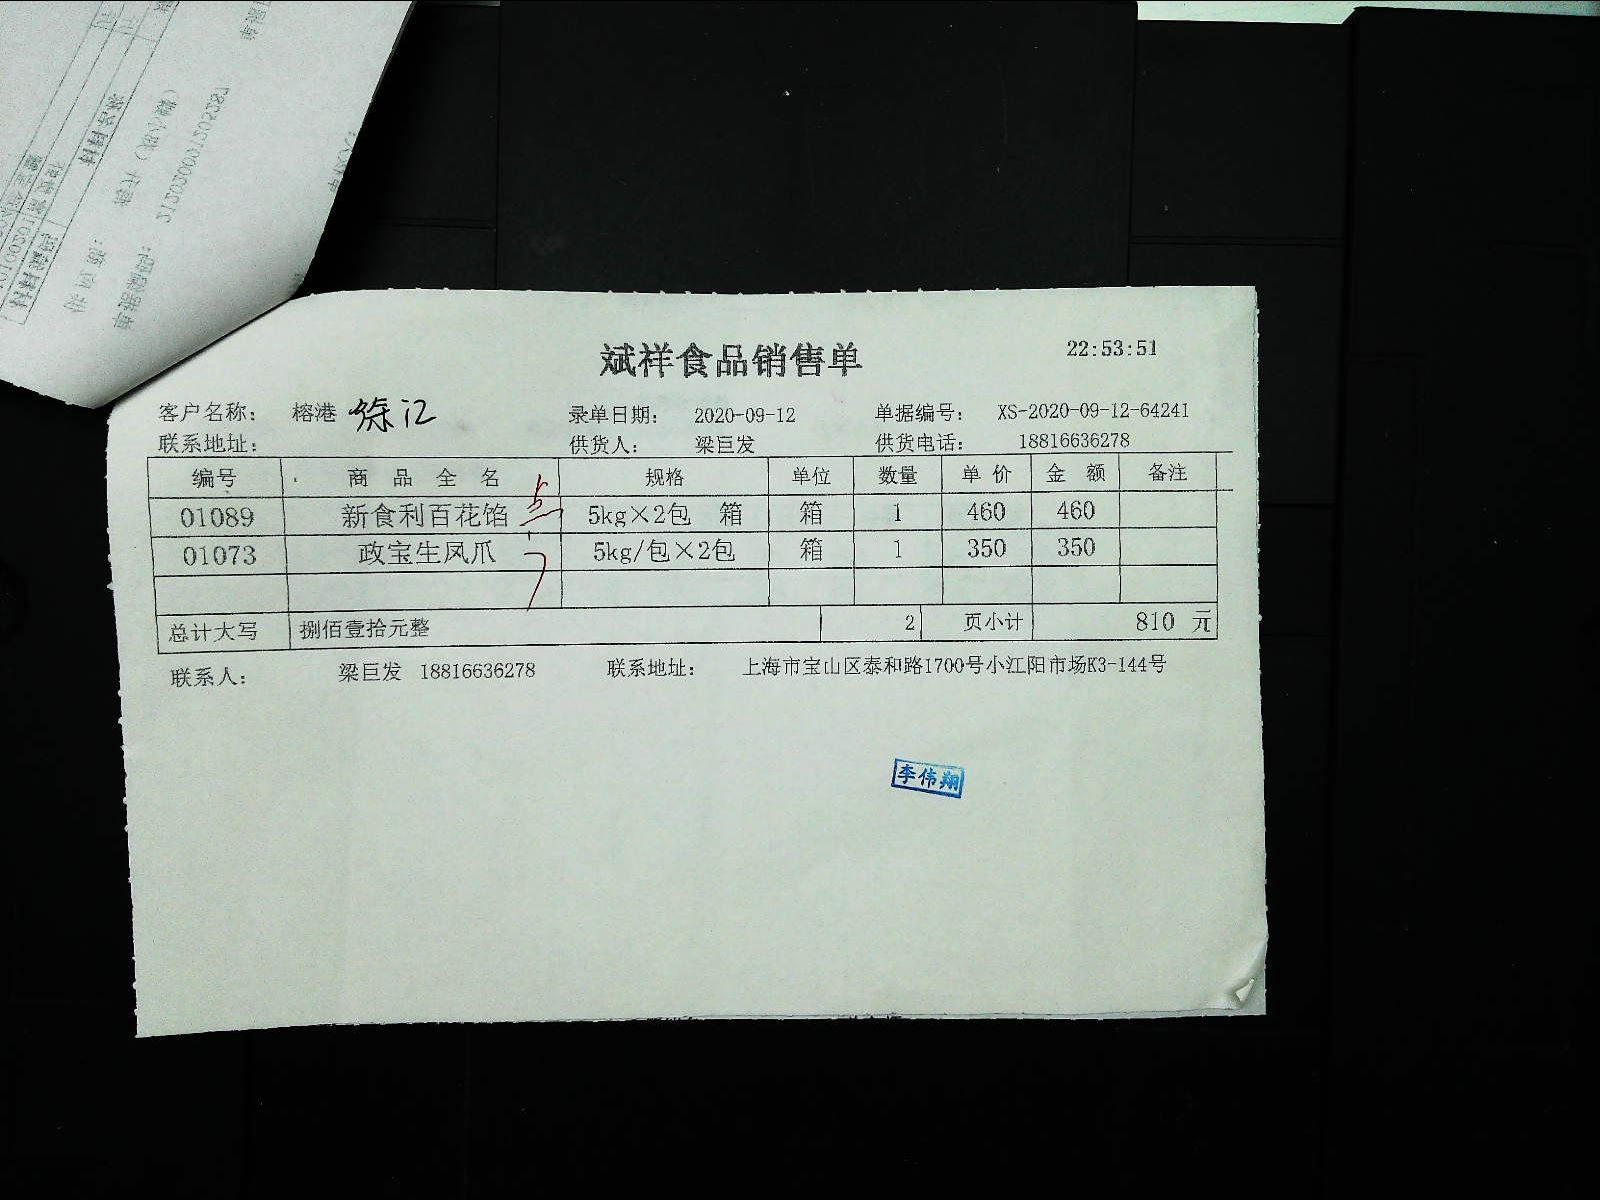 斌祥食品销售单 22:53:51
客户名称： 榕港 徐汇 录单日期： 2020-09-12 单据编号： XS-2020-09-12-64241
联系地址： 供货人： 梁巨发 供货电话： 18816636278
编号 商品全名 规格 单位 数量 单价 金额 备注
01089 新食利百花馅 5kg×2包 箱 箱 1 460 460
01073 政宝生凤爪 5kg/包×2包 箱 1 350 350
点
总计大写 捌佰壹拾元整 2 页小计 810 元
联系人： 梁巨发 18816636278 联系地址： 上海市宝山区泰和路1700号小江阳市场K3-144号
李伟翔